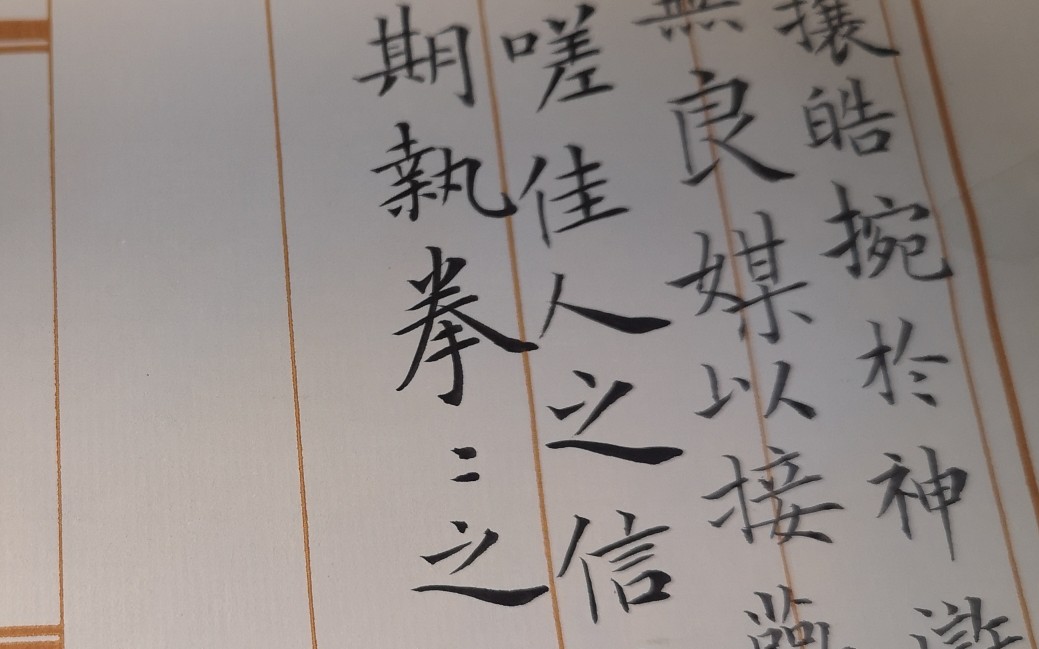 攘皓捥於神滸
無良媒以接
嗟佳人之信
期執拳〻之